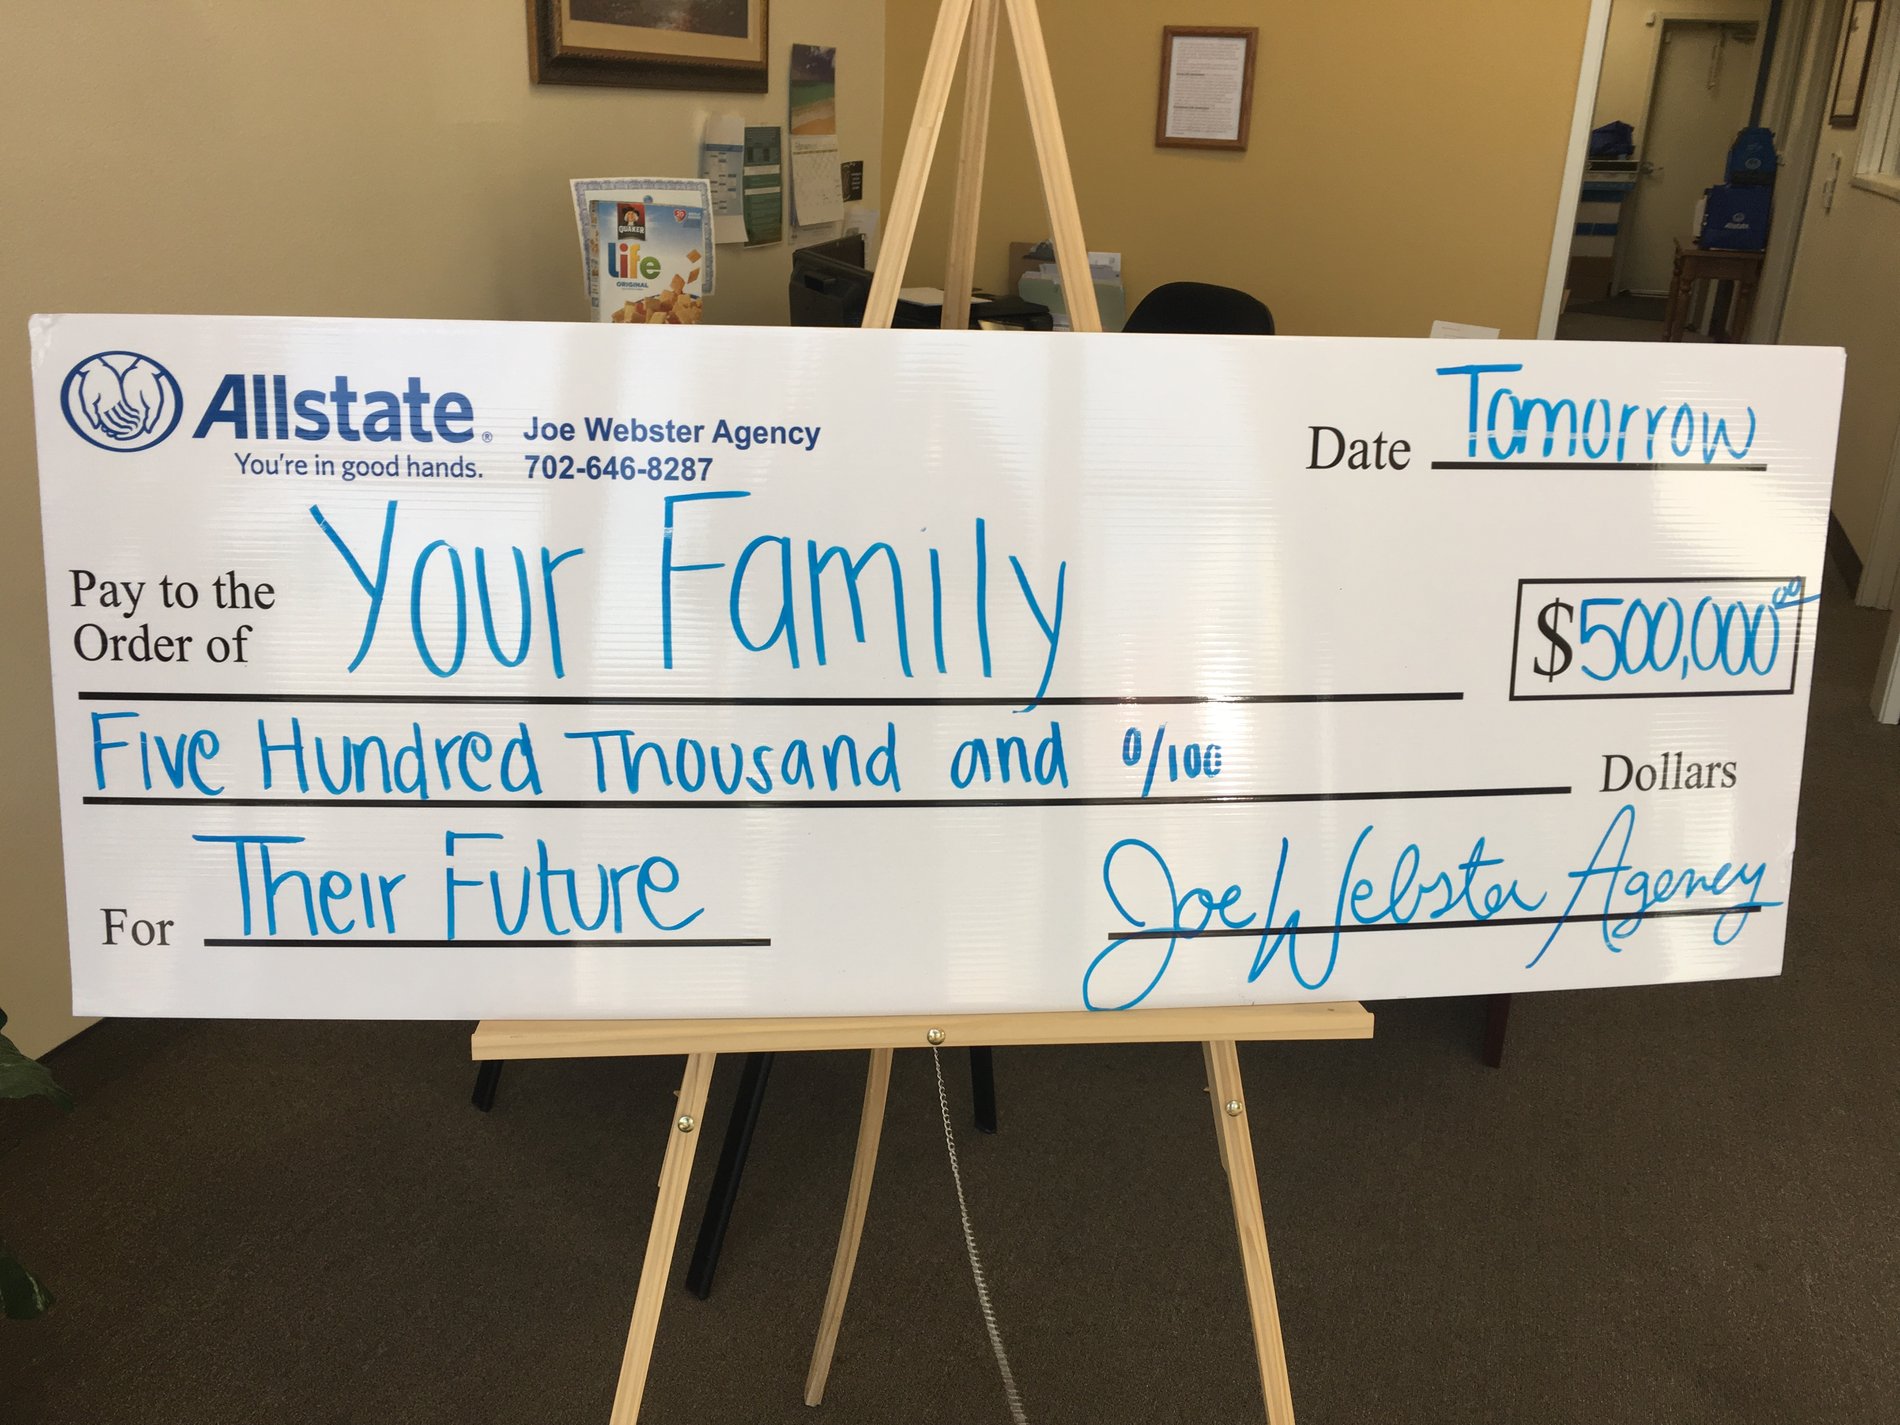 QUAKER
Life
ORIGINAL
Allstate®
You're in good hands.
Joe Webster Agency
702-646-8287
Date Tomorrow
Pay to the
Order of
Your Family
$500,000⁰⁰
Five Hundred Thousand and 0/100 Dollars
For Their Future
Joe Webster Agency
Allstate